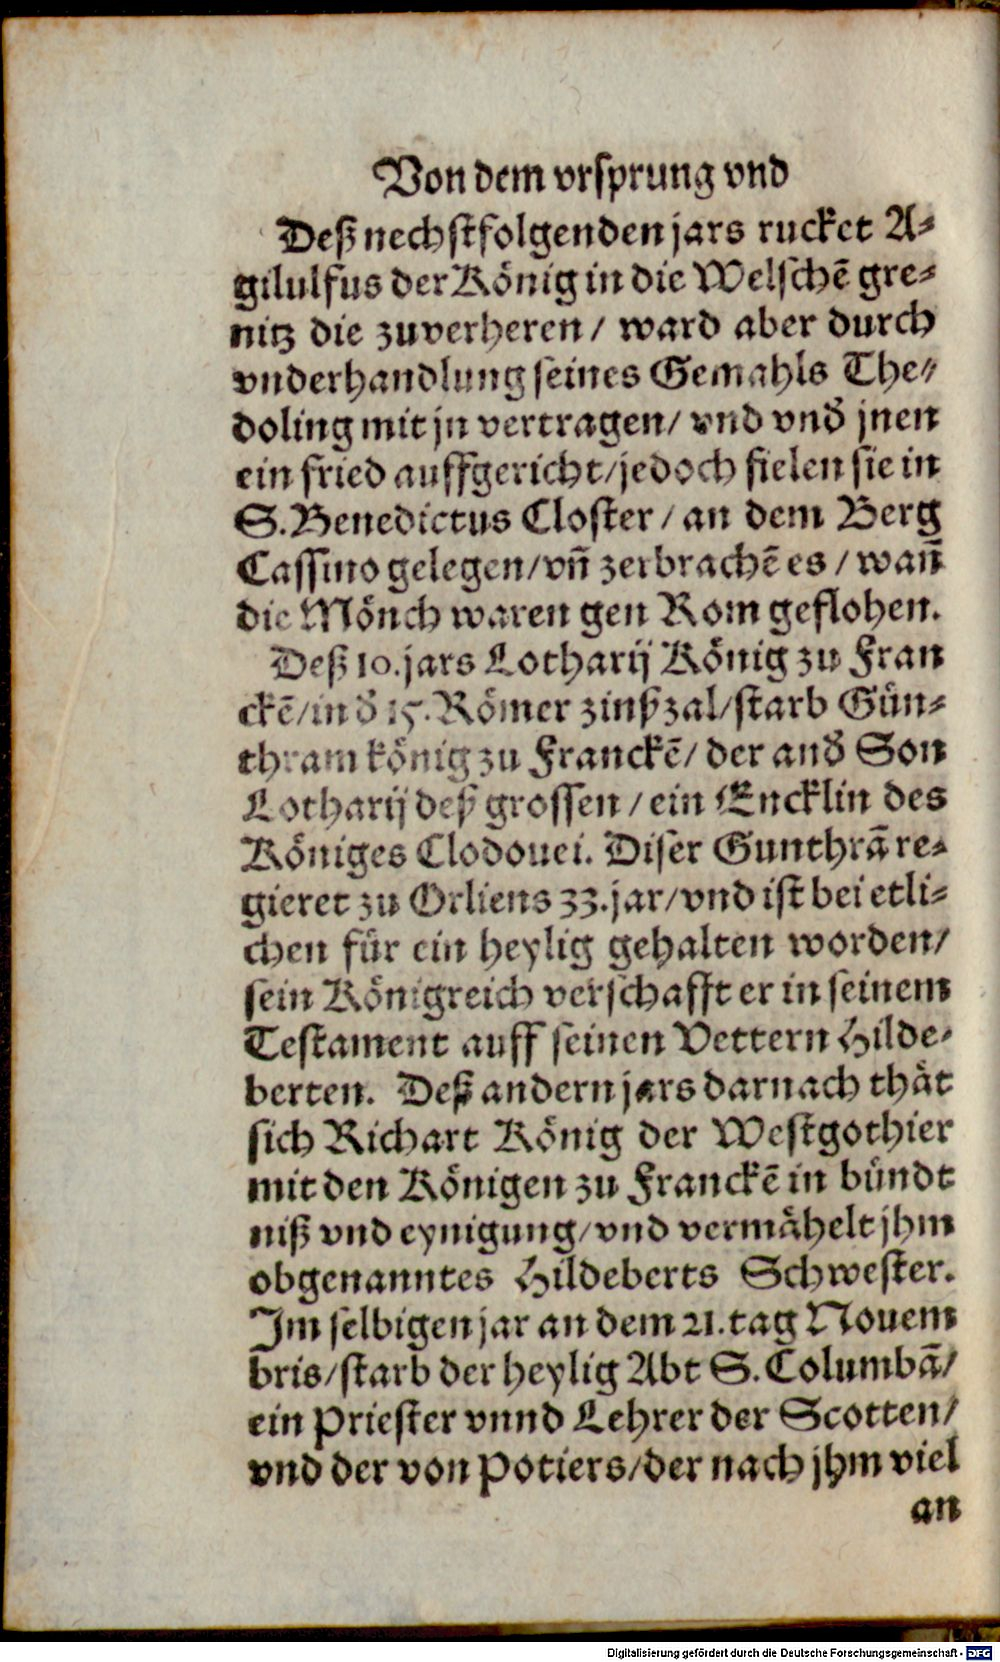 Von dem vrsprung vnd
Deß nechstfolgenden jars rucket A⸗
gilulfus der König in die Welschẽ gre⸗
nitz die zuverheren / ward aber durch
vnderhandlung seines Gemahls The⸗
doling mit jn vertragen / vnd vnd̕ jnen
ein fried auffgericht / jedoch fielen sie in
S. Benedictus Closter / an dem Berg
Cassino gelegen / vñ zerbrachẽ es / wañ
die Mönch waren gen Rom geflohen.
Deß 10. jars Lotharij König zu Fran
ckẽ / in d̕ 15. Römer zinßzal / starb Gün⸗
thram könig zu Franckẽ / der and̕ Son
Lotharij deß grossen / ein Encklin des
Königes Clodouei. Diser Gunthrã re⸗
gieret zu Orliens 33. jar / vnd ist bei etli⸗
chen für ein heylig gehalten worden /
sein Königreich verschafft er in seinem
Testament auff seinen Vettern Hilde⸗
berten. Deß andern jars darnach thät
sich Richart König der Westgothier
mit den Königen zu Franckẽ in bündt
niß vnd eynigung / vnd vermähelt jhm
obgenanntes Hildeberts Schwester.
Im selbigen jar an dem 21. tag Nouem
bris / starb der heylig Abt S. Columbã /
ein Priester vnnd Lehrer der Scotten /
vnd der von Potiers / der nach jhm viel
an
Digitalisierung gefördert durch die Deutsche Forschungsgemeinschaft - DFG